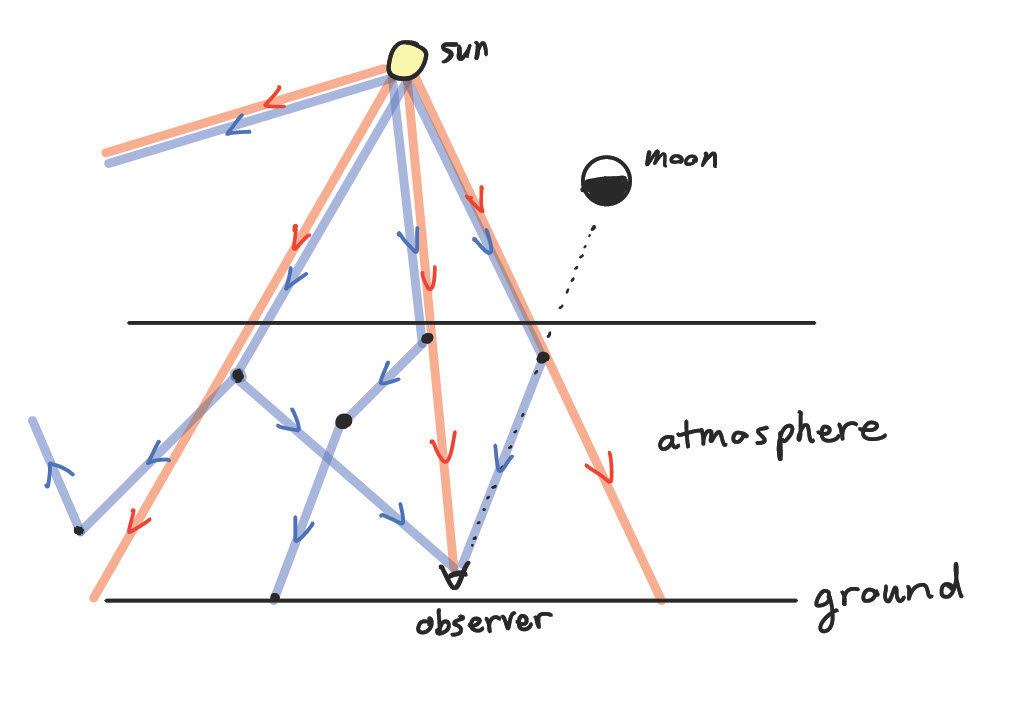 sun
moon
atmosphere
ground
observer